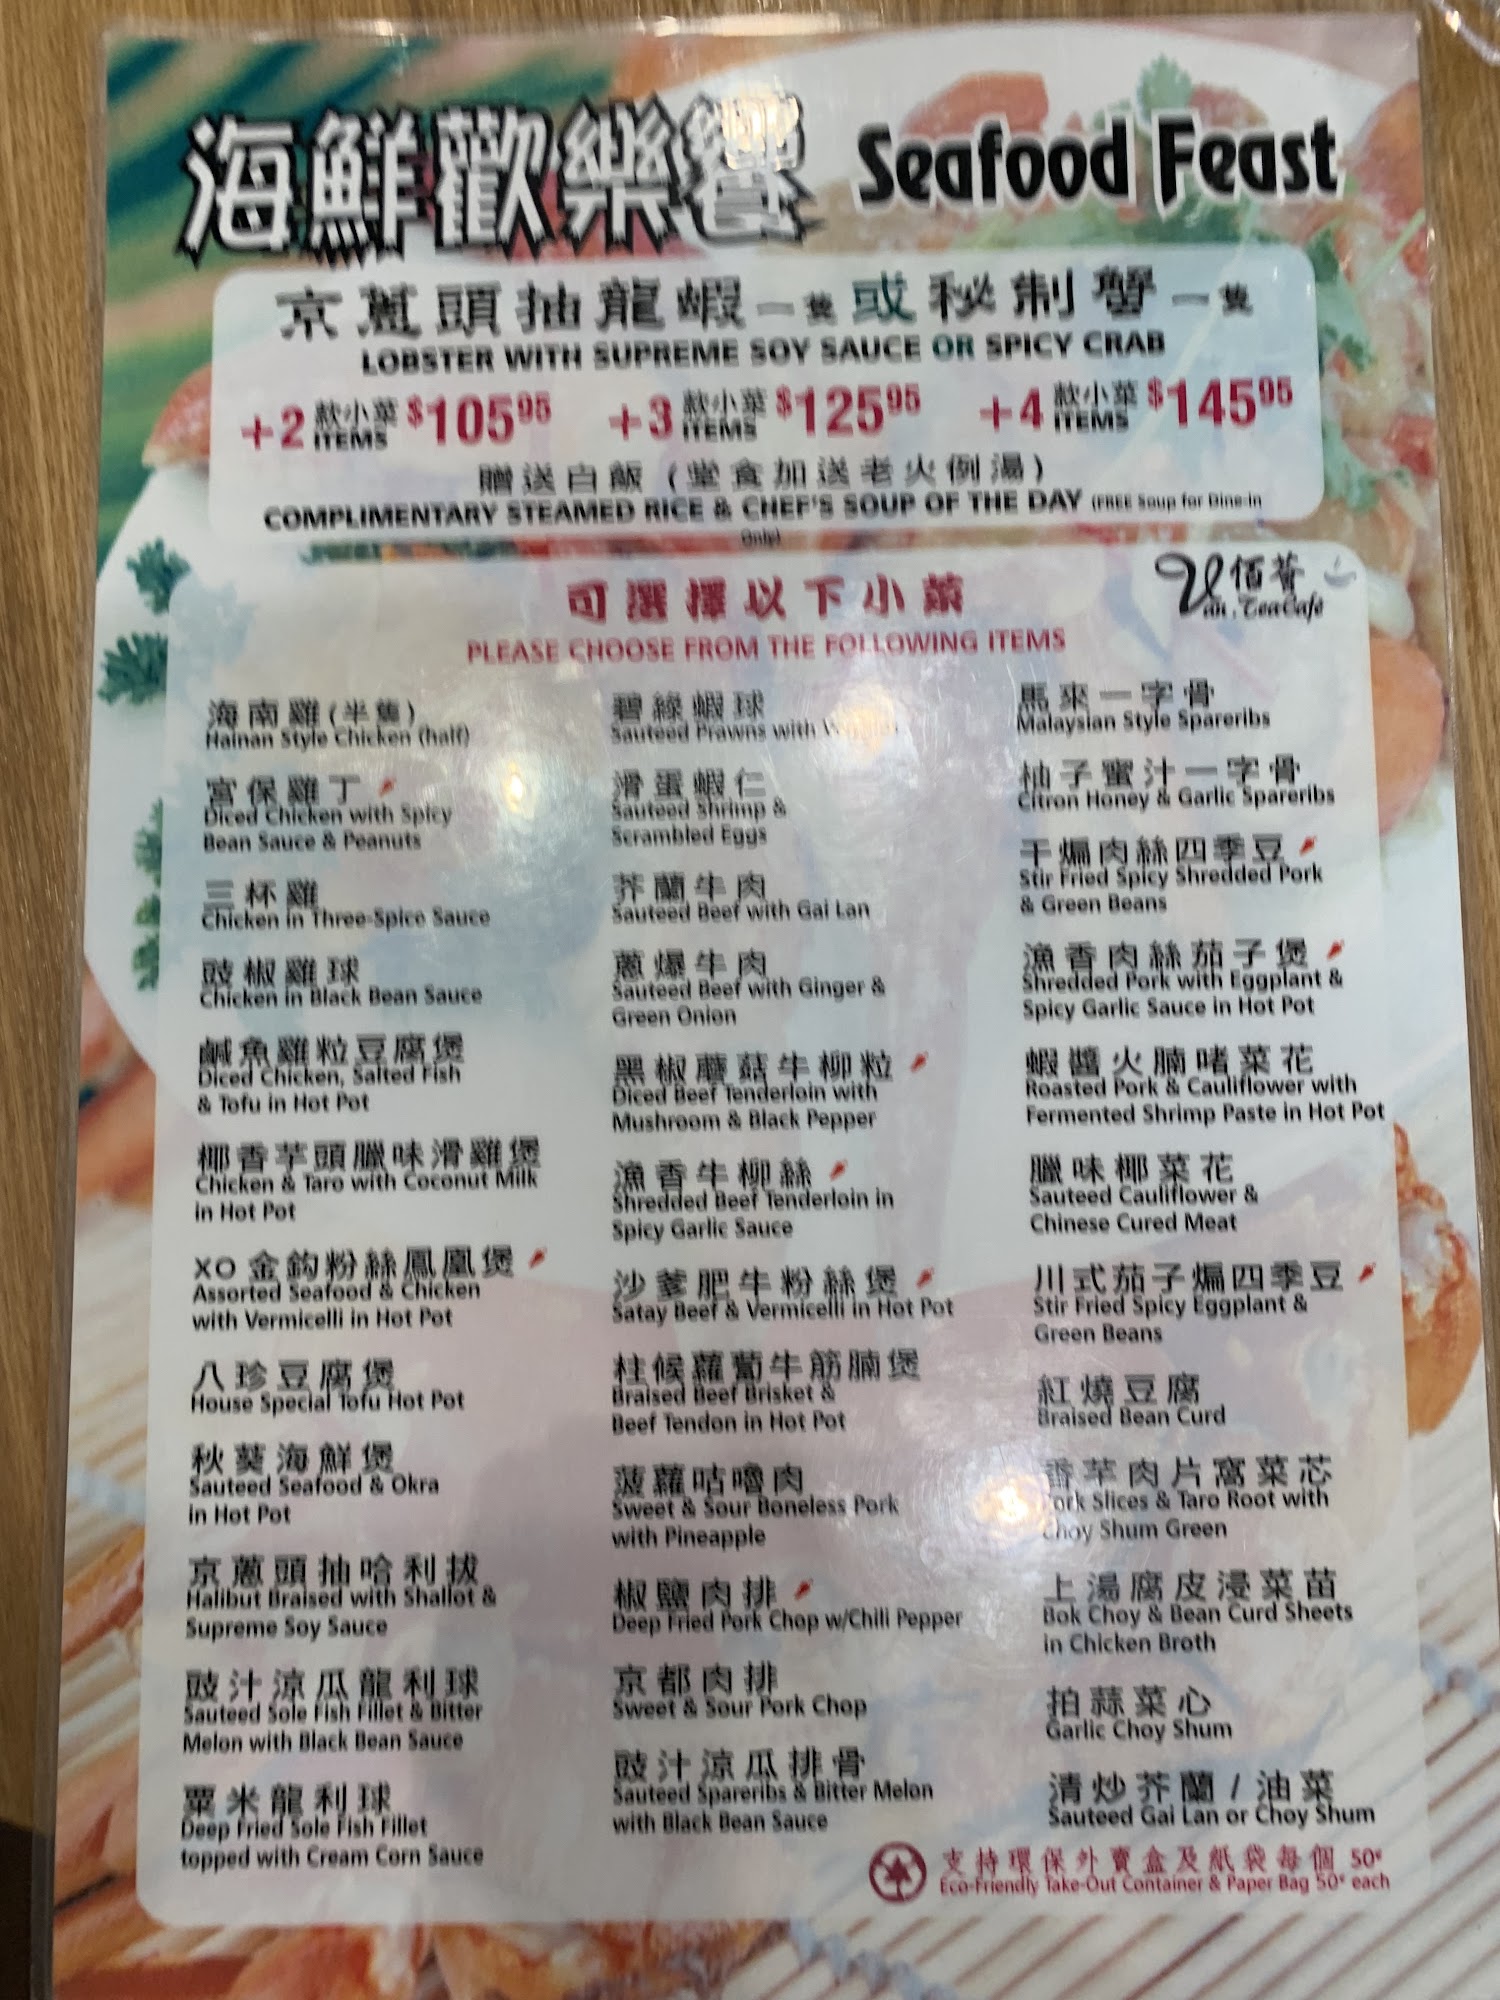 海鮮歡樂饗 Seafood Feast
京蔥頭抽龍蝦一隻或秘制蟹一隻
LOBSTER WITH SUPREME SOY SAUCE OR SPICY CRAB
+2 款小菜 ITEMS $105.95 +3 款小菜 ITEMS $125.95 +4 款小菜 ITEMS $145.95
贈送白飯 (堂食加送老火例湯)
COMPLIMENTARY STEAMED RICE & CHEF'S SOUP OF THE DAY (FREE Soup for Dine-in
Only)
佰薈
Van. Tea Café
可選擇以下小菜
PLEASE CHOOSE FROM THE FOLLOWING ITEMS
海南雞(半隻)
Hainan Style Chicken (half)
宮保雞丁
Diced Chicken with Spicy
Bean Sauce & Peanuts
三杯雞
Chicken in Three-Spice Sauce
豉椒雞球
Chicken in Black Bean Sauce
鹹魚雞粒豆腐煲
Diced Chicken, Salted Fish
& Tofu in Hot Pot
椰香芋頭臘味滑雞煲
Chicken & Taro with Coconut Milk
in Hot Pot
XO 金鈎粉絲鳳凰煲
Assorted Seafood & Chicken
with Vermicelli in Hot Pot
八珍豆腐煲
House Special Tofu Hot Pot
秋葵海鮮煲
Sauteed Seafood & Okra
in Hot Pot
京蔥頭抽哈利拔
Halibut Braised with Shallot &
Supreme Soy Sauce
豉汁涼瓜龍利球
Sauteed Sole Fish Fillet & Bitter
Melon with Black Bean Sauce
粟米龍利球
Deep Fried Sole Fish Fillet
topped with Cream Corn Sauce
碧綠蝦球
Sauteed Prawns with
滑蛋蝦仁
Sauteed Shrimp &
Scrambled Eggs
芥蘭牛肉
Sauteed Beef with Gai Lan
蔥爆牛肉
Sauteed Beef with Ginger &
Green Onion
黑椒蘑菇牛柳粒
Diced Beef Tenderloin with
Mushroom & Black Pepper
漁香牛柳絲
Shredded Beef Tenderloin in
Spicy Garlic Sauce
沙爹肥牛粉絲煲
Satay Beef & Vermicelli in Hot Pot
柱候蘿蔔牛筋腩煲
Braised Beef Brisket &
Beef Tendon in Hot Pot
菠蘿咕嚕肉
Sweet & Sour Boneless Pork
with Pineapple
椒鹽肉排
Deep Fried Pork Chop w/Chili Pepper
京都肉排
Sweet & Sour Pork Chop
豉汁涼瓜排骨
Sauteed Spareribs & Bitter Melon
with Black Bean Sauce
馬來一字骨
Malaysian Style Spareribs
柚子蜜汁一字骨
Citron Honey & Garlic Spareribs
干煸肉絲四季豆
Stir Fried Spicy Shredded Pork
& Green Beans
漁香肉絲茄子煲
Shredded Pork with Eggplant &
Spicy Garlic Sauce in Hot Pot
蝦醬火腩啫菜花
Roasted Pork & Cauliflower with
Fermented Shrimp Paste in Hot Pot
臘味椰菜花
Sauteed Cauliflower &
Chinese Cured Meat
川式茄子煸四季豆
Stir Fried Spicy Eggplant &
Green Beans
紅燒豆腐
Braised Bean Curd
香芋肉片窩菜芯
Pork Slices & Taro Root with
Choy Shum Green
上湯腐皮浸菜苗
Bok Choy & Bean Curd Sheets
in Chicken Broth
拍蒜菜心
Garlic Choy Shum
清炒芥蘭/油菜
Sauteed Gai Lan or Choy Shum
支持環保外賣盒及紙袋每個 50¢
Eco-Friendly Take-Out Container & Paper Bag 50¢ each